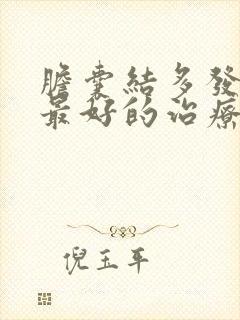 膽囊結多發
最好的治療
倪玉平